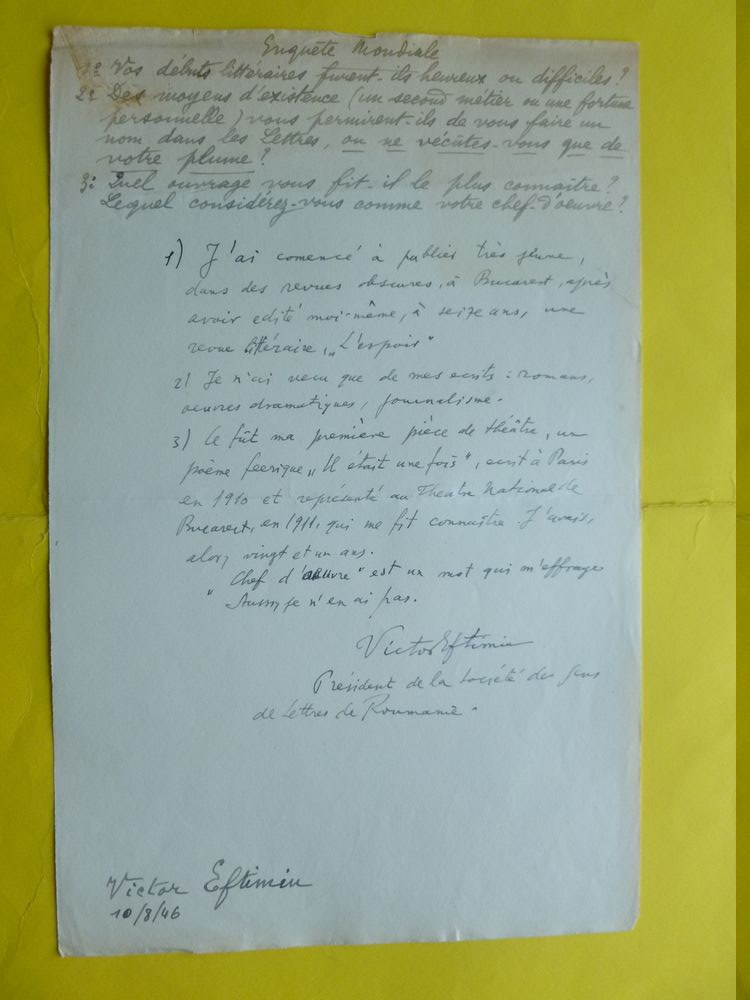 Enquête Mondiale
1º Vos débuts littéraires furent-ils heureux ou difficiles?
2º Des moyens d'existence (un second métier ou une fortune
personnelle) vous permirent-ils de vous faire un
nom dans les Lettres, ou ne vécûtes-vous que de
votre plume?
3º Quel ouvrage vous fit-il le plus connaître?
Lequel considérez-vous comme votre chef-d'oeuvre?
1) J'ai comencé à publier très jeune,
dans des revues obscures, à Bucarest, après
avoir edité moi-même, à seize ans, une
revue littéraire, „L'espoir"
2) Je n'ai vecu que de mes ecrits: romans,
oeuvres dramatiques, journalisme.
3) Ce fût ma première pièce de théâtre, un
poème feerique „Il était une fois", ecrit à Paris
en 1910 et représenté au Theatre National de
Bucarest, en 1911, qui me fit connaitre. J'avais,
alors, vingt et un ans.
„Chef d'oeuvre" est un mot qui m'effraye
Aussi, je n'en ai pas.
Victor Eftimiu
Président de la Société des Gens
de Lettres de Roumanie.
Victor Eftimiu
10/8/46